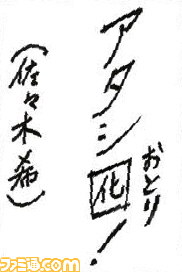 アタシ囮！
おとり
（佐々木希）
ファミ通.com